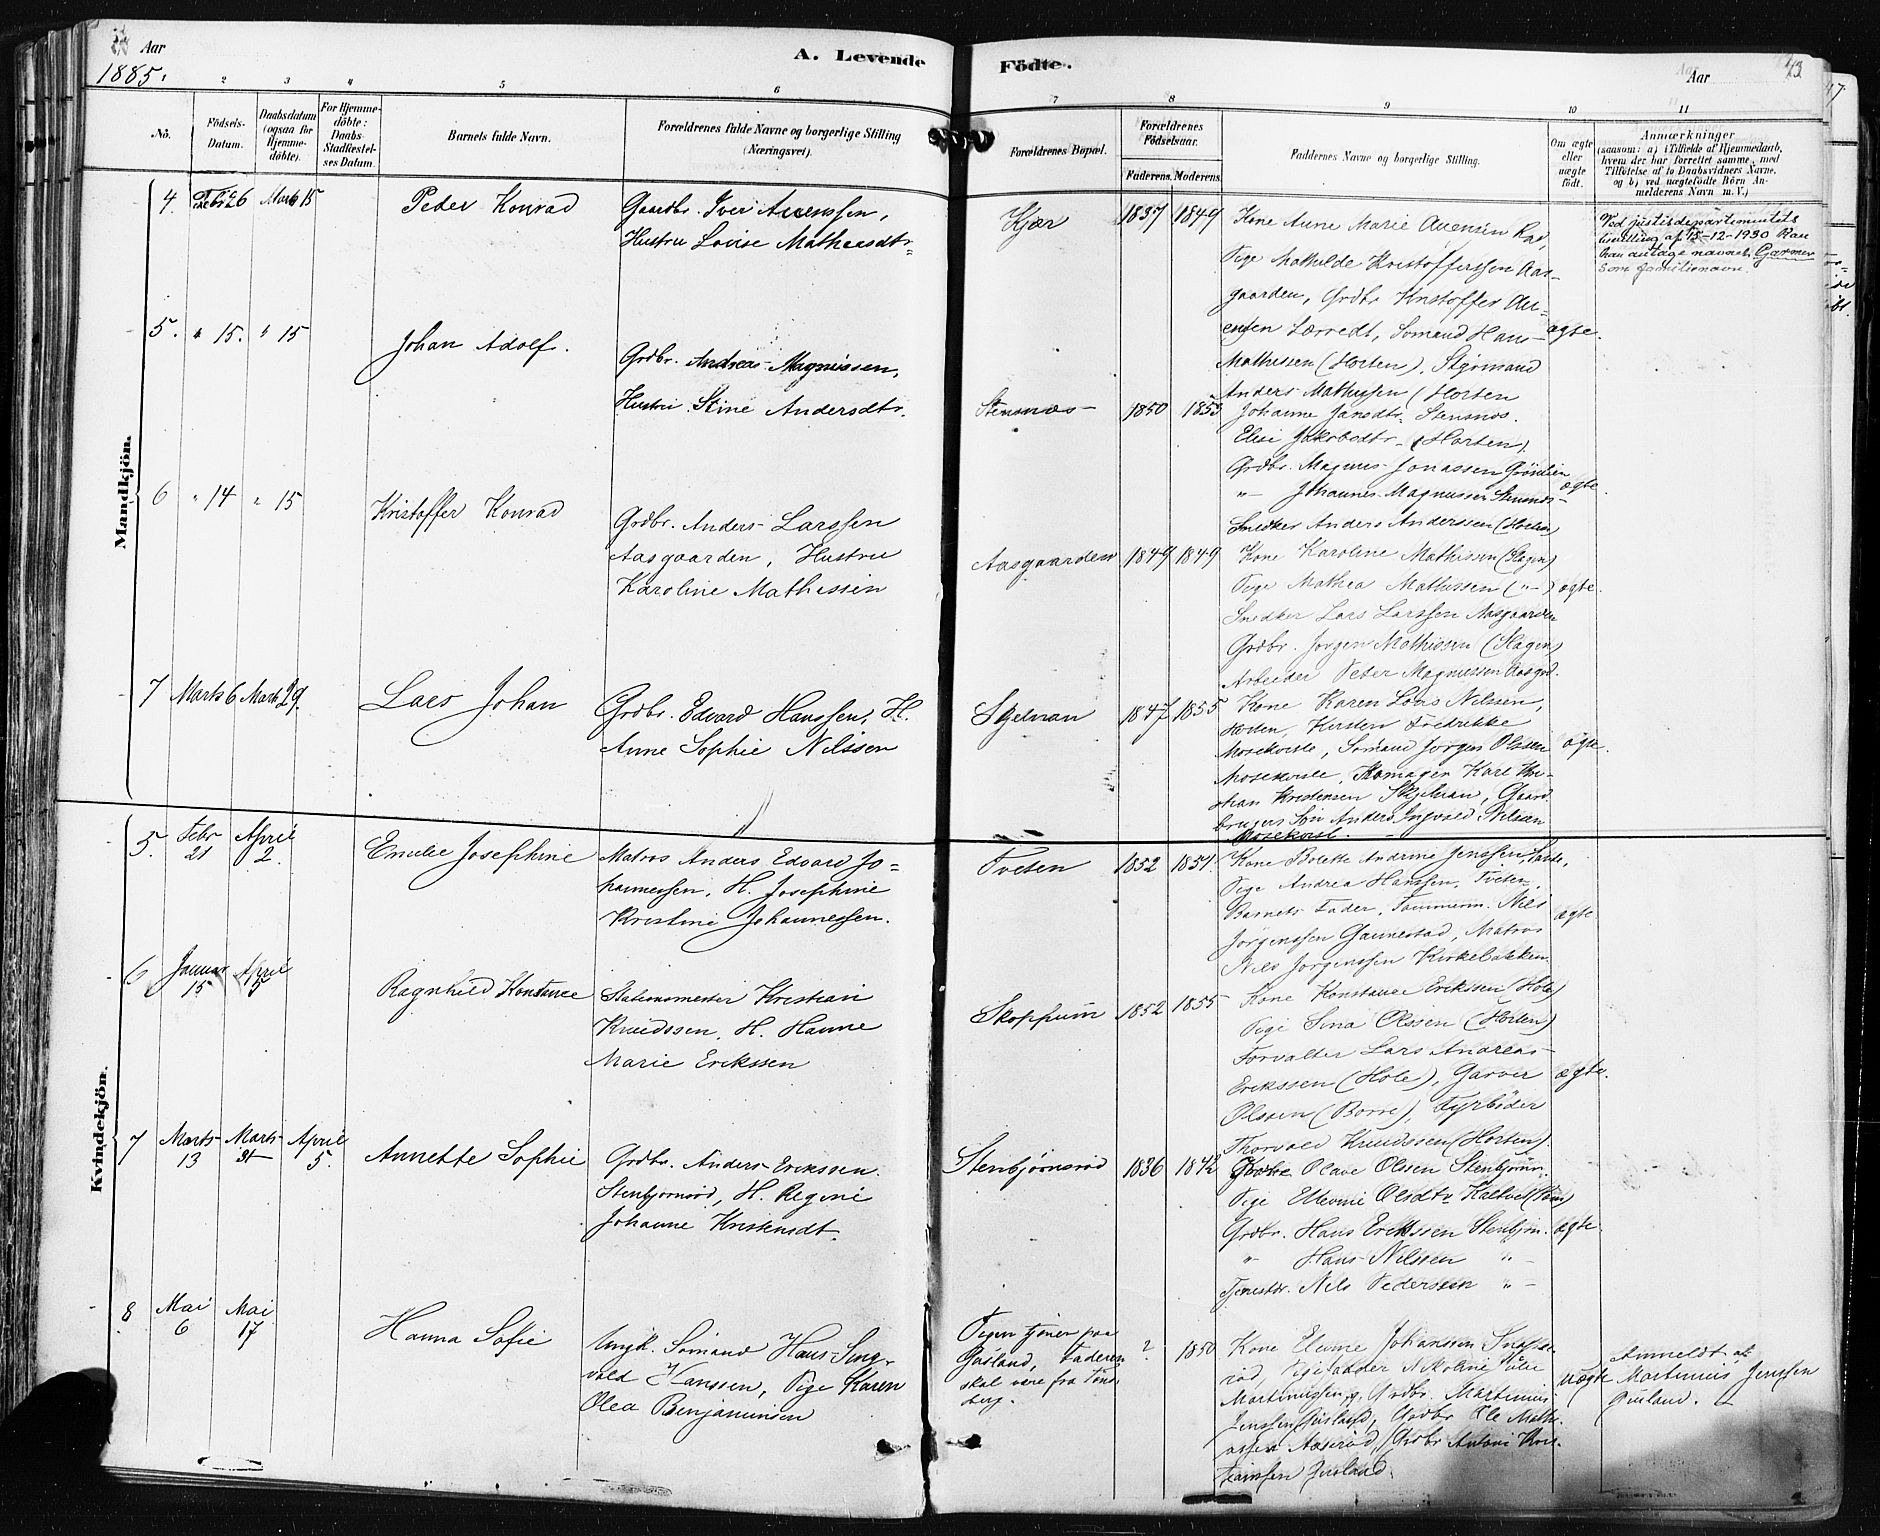 Aar
1885.
A. Levende
Födte.
Aar
73
2 3 4 5 6 7 8 9 10 11
Nô.
Födsels-Datum.
Daabsdatum (ogsaa for Hjemmedöbte).
For Hjemmedöbte: Daabs-Stadfæstelses Datum.
Barnets fulde Navn.
Forældrenes fulde Navne og borgerlige Stilling (Næringsvei).
Forældrenes Bopæl.
Forældrenes Födselsaar.
Faderens. Moderens.
Faddernes Navne og borgerlige Stilling.
Om ægte eller uægte födt.
Anmærkninger
(saasom: a) i Tilfælde af Hjemmedaab, hvem der har forrettet samme, med Tilföielse af to Daabsvidners Navne, og b) ved uægtefödte Börn Anmelderens Navn m. V.)
Mandkjön.
4. 26 Marts 15
Peder Konrad
Gaardbr. Iver Auenssen,
Hustru Lovise Matheasdtr
Kjær
1837 1849
Kone Anne Marie Auensen
Pige Mathilde Kristofferssen Aas-
gaarden, Grdbr. Kristoffer Au-
ensen Lærredt, Sömand Hans
Mathissen (Horten), Styrmand
Anders Mathissen (Horten
ægte.
Ved justisdepartementets
bevilling af 15-12-1930 kan
han antage navnet Gjærner
som familienavn.
5. " 15. " 15
Johan Adolf.
Grdbr. Andreas Magnissen,
Hustru Stine Andersdtr.
Stensnæs
1850 1853
Johanne Jansdtr. Stensnæs.
Elise Jakobsdtr. (Horten)
Grdbr. Magnus Jonassen Grönlien
" Johannes Magnussen Stensnæs
Snedker Anders Anderssen (Horten)
ægte.
6 " 14 " 15
Kristoffer Konrad
Grdbr. Anders Larssen
Aasgaarden, Hustru
Karoline Mathissen
Aasgaarden
1849 1849
Kone Karoline Mathissen (Slagen)
Pige Mathea Mathissen ( " )
Snedker Lars Larssen Aasgaarden
Grdbr. Jørgen Mathissen (Slagen)
Arbeider Peter Magnussen Aasgrd.
ægte.
7 Marts 6 Marts 29.
Lars Johan
Grdbr. Edvard Hanssen, H.
Anne Sophie Nilssen
Skjelnan
1847 1855
Kone Karen Lovis Nilssen,
Holten, Kirsten Fredrikke
Mosekvist, Sömand Jørgen Olssen
Mosekvist, Skomager Karl Kri-
stian Kristensen Skjelnan, Gaard-
brugers Sön Anders Ingvald Nilssen
Mosekvist.
ægte.
Kvindekjön.
5. Febr 21 April 2.
Emilie Josephine
Matros Anders Edvard Jo-
hannessen, H. Josephine
Kristine Johannessen.
Tveten
1852 1851.
Kone Bolette Andrine Jenssen
Pige Andrea Hanssen, Tveten,
Barnets Fader, Tömmerm. Nils
Jörgenssen Gannestad, Matros
Nils Jorgenssen Kirkebakken
ægte
6 Januar 15 April 5
Ragnhild Konstance
Stationsmester Kristian
Knudssen, H. Hanne
Marie Erikssen
Skoppum
1852 1855
Kone Konstance Erikssen (Hole)
Pige Sina Olssen (Horten)
Forvalter Lars Andreas
Erikssen (Hole), Garver
Olssen (Borre), Fyrböder
Thorvald Knudssen (Horten)
ægte.
7 Marts 13 Marts 31 April 5.
Annette Sophie
Grdbr. Anders Erikssen
Stenbjørnsrød, H. Regine
Johanne Kristensdt.
Stenbjørnsrød
1836 1842
Olave Olssen Stenbjørn.
Pige Ellevine Olsdtr Kaltvet
Grdbr. Hans Erikssen Stenbjørn.
" Hans Nilssen "
Tjenestdr. Nils Pederssen "
ægte
8 Mai 6 Mai 17
Hanna Sofie
Ungk. Sömand Hans Ing-
vald Hanssen, Pige Karen
Olea Benjaminsen
Pigen tjener paa
Gusland, Faderen
skal være fra Töns-
berg.
? 1850
Kone Elume Johanssen
rød, Pige Nikoline
Martinussen, Grdbr. Martinius
Jenssen Gusland, Grdbr. Ole Math-
iassen Aaserød, Grdbr Antoni Kris-
tianssen Gusland.
uægte
Anmeldt af
Martinius Jenssen
Gusland.